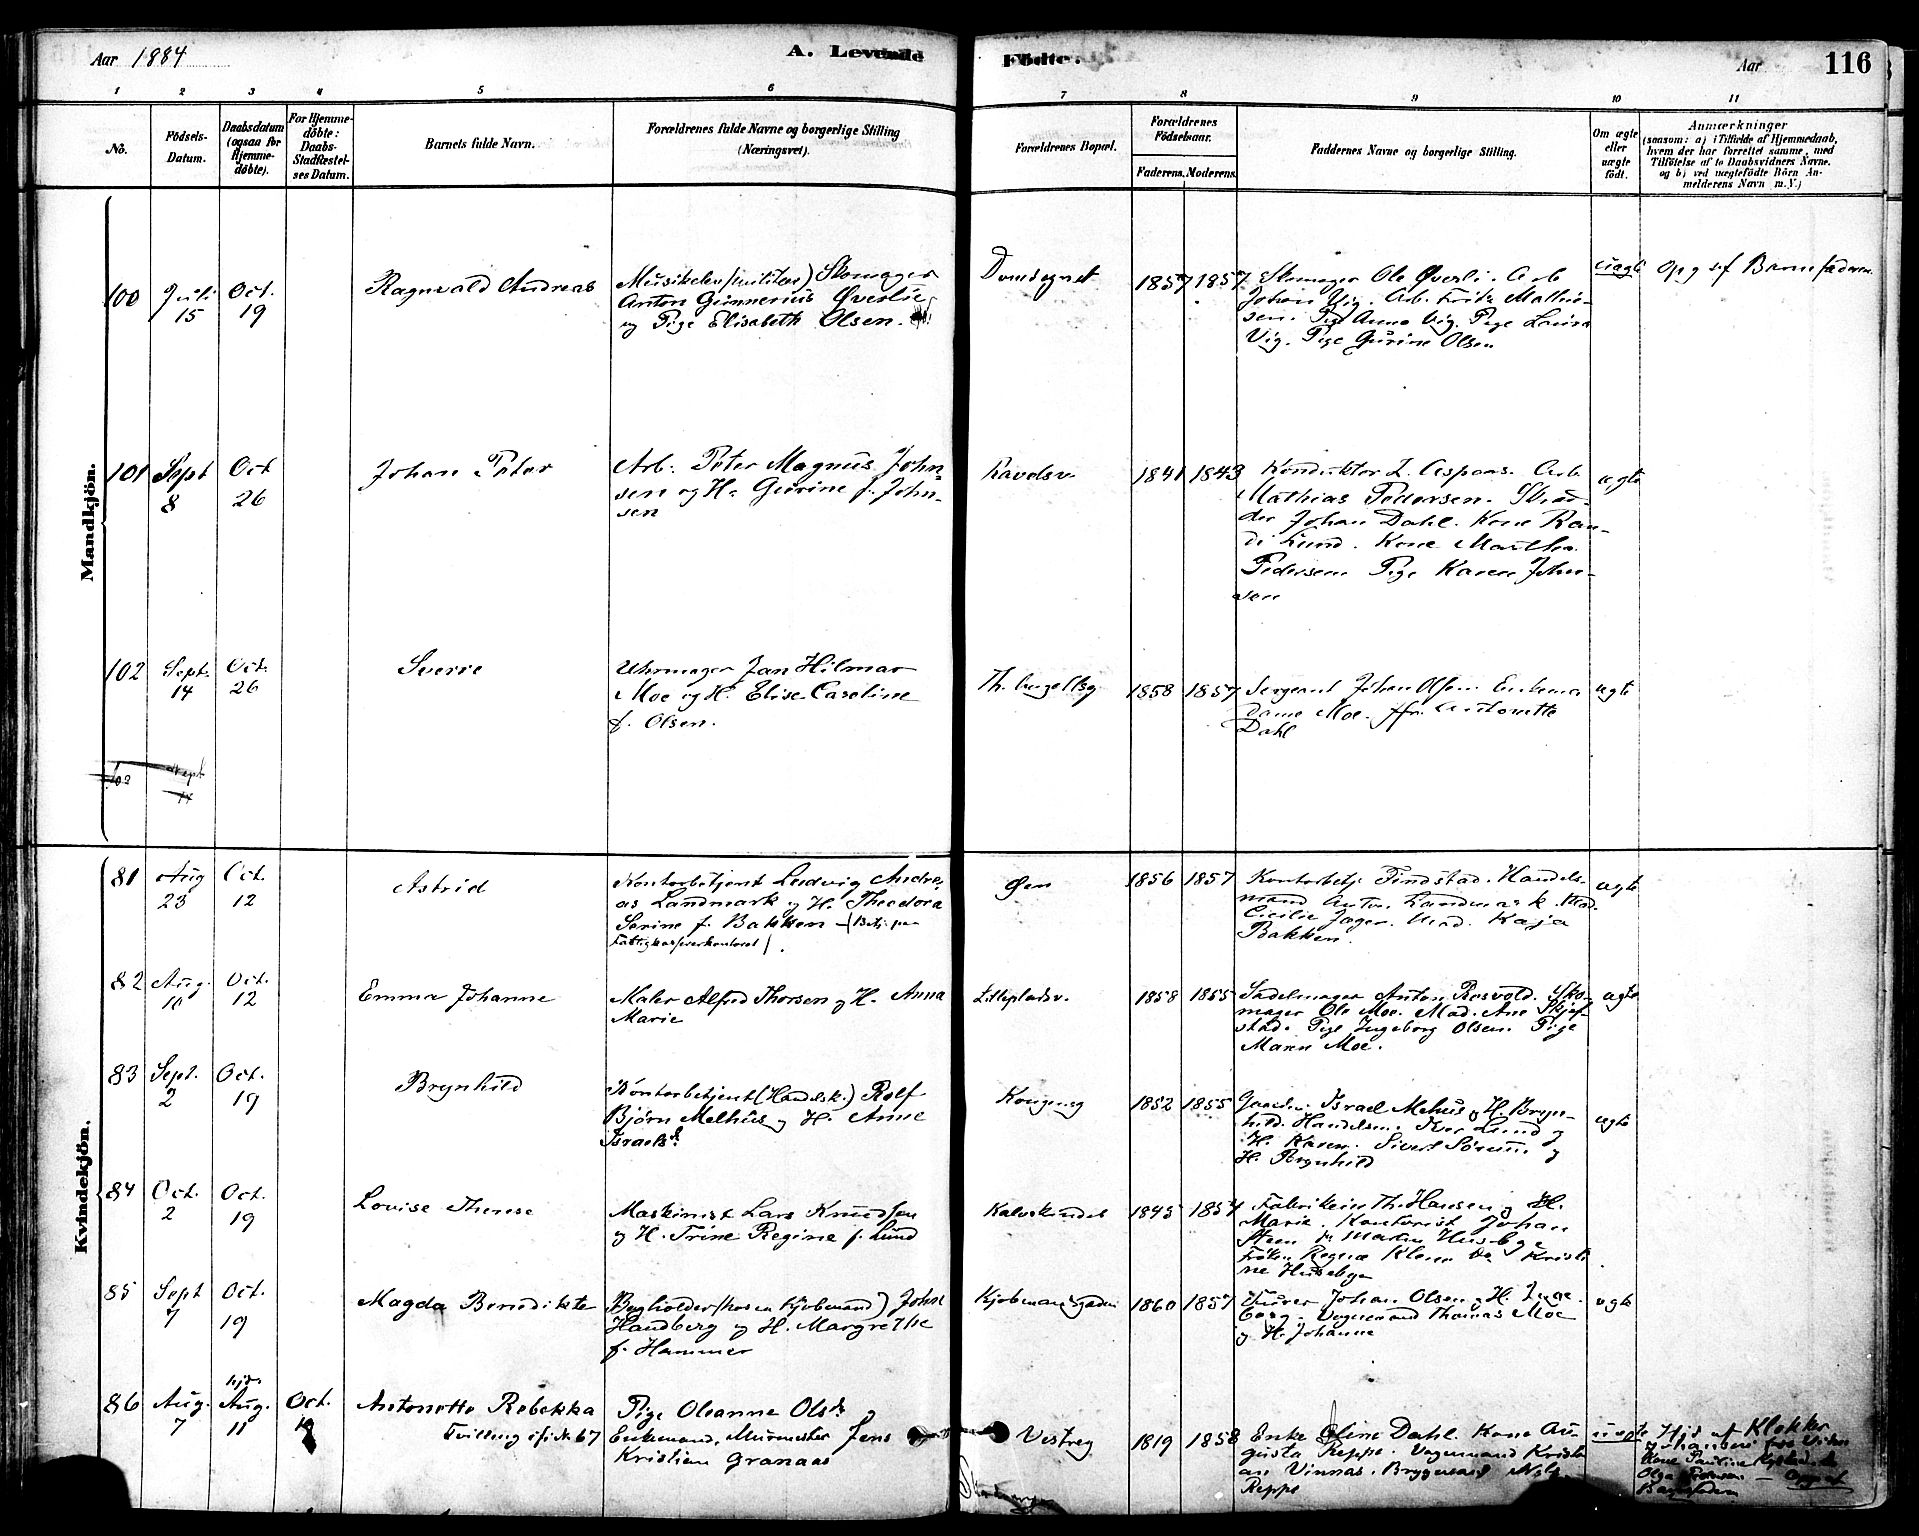 Aar 1884
A. Levende
Fødte.
Aar
116
1 2 3 4 5 6 7 8 9 10 11
No.
Födsels-
Datum.
Daabsdatum
(ogsaa for
Hjemme-
döbte).
For Hjemme-
döbte:
Daabs-
Stadfæstel-
ses Datum.
Barnets fulde Navn.
Forældrenes fulde Navne og borgerlige Stilling
(Næringsvei).
Forældrenes Bopæl.
Forældrenes
Födselsaar.
Faderens. Moderens.
Faddernes Navne og borgerlige Stilling.
Om ægte
eller
uægte
födt.
Anmærkninger
(saasom: a) i Tilfælde af Hjemmedaab,
hvem der har forrettet samme, med
Tilföielse af to Daabsvidners Navne.
og b) ved uægtefödte Börn An-
melderens Navn m.V.)
Mandkjön.
100
Juli
15
Oct.
19
Ragnvald Andreas
Skomager
Anton Gunnerius Øverlie
og Pige Elisabeth Olsen.
1857 1857
Skomager Ole Øverli. Arb
Johan Vig. Arb. Fritz Mathie-
sen. Pige Anna Vig. Pige Laura
Vig. Pige Gurine Olsen
uægte
Opg. af Barnefaderen
101
Sept
8
Oct
26
Johan Peter
Arb. Peter Magnus John-
sen og H. Gurine f. John-
sen
1841 1843
Konduktör L. Aspaas. Arb
Mathias Pedersen. Skræd-
der Johan Dahl. Kone Ran-
di Lund. Kone Martha
Pedersen Pige Karen John-
sen
ægte
102
Sept.
14
Oct.
26
Sverre
Uhrmager Jan Hilmar
Moe og H. Elise Caroline
f. Olsen.
1858 1857
Sergeant Johan Olsen. Enkema
dame Moe. Antonette
Dahl
ægte
Sept
14
Kvindekjön.
81
Aug
23
Oct.
12
Astrid
Kontorbetjent Ludvig Andre-
as Landmark og H. Theodora
Serine f. Bakken
Øen
1856 1857
Kontorbetj. Findstad. Handels-
mand Anton Landmark. Mad.
Cicilie Jæger. Mad. Kaja
Bakken.
ægte
82
Aug.
10
Oct.
12
Emma Johanne
Maler Alfred Thorsen og H. Anna
Marie
1858 1855
Sadelmager Anton Rosvold. Sko-
mager Ole Moe. Mad. Ane Skjef-
stad. Pige Ingeborg Olsen. Pige
Maren Moe.
ægte
83
Sept.
2
Oct.
19
Brynhild
Kontorbetjent (Handelsk.) Rolf
Bjørn Melhus og H. Anne
Israelsd.
1852 1855
Israel Mehus og H. Bryn-
hild. Handelsm. Iver Lund og
H. Karen. Sivert Sørum og
H. Brynhild
ægte
84
Oct.
2
Oct.
19
Lovise Therese
Maskinist Lars Knudsen
og H. Trine Regine f. Lund
Kalvskindet
1845 1854
Fabrikeier Th. Hansen og H.
Marie. Kontorist Johan
Steen Martin Husebye
Frøken Regine Kristi-
ne Husebye
85
Sept
7
Oct.
19
Magda Benedikte
Bryholder (hos en Kjøbmand) John
Handberg og H. Margrethe
f. Hammer
Kjøbmandsgaden
1860 1857
Johan Olsen og H. Inge-
borg. Vognmand Thomas Moe
og H. Johanne
ægte
86
Aug.
7
hjd.
Aug.
11
Oct.
19
Antonette Rebekka
Tvilling
Pige Oleanne Olsd. og
Enkemand, Murmester Jens
Kristian Granaas
1819 1858
Enke Oline Dahl. Kone Au-
gusta Reppe. Vognmand Kristi-
an Vinnas. Bryggemand Nils
Reppe
uægte
Hjd. af Klokker
Kone Pauline
Olga
Opg. af
Barnefaderen